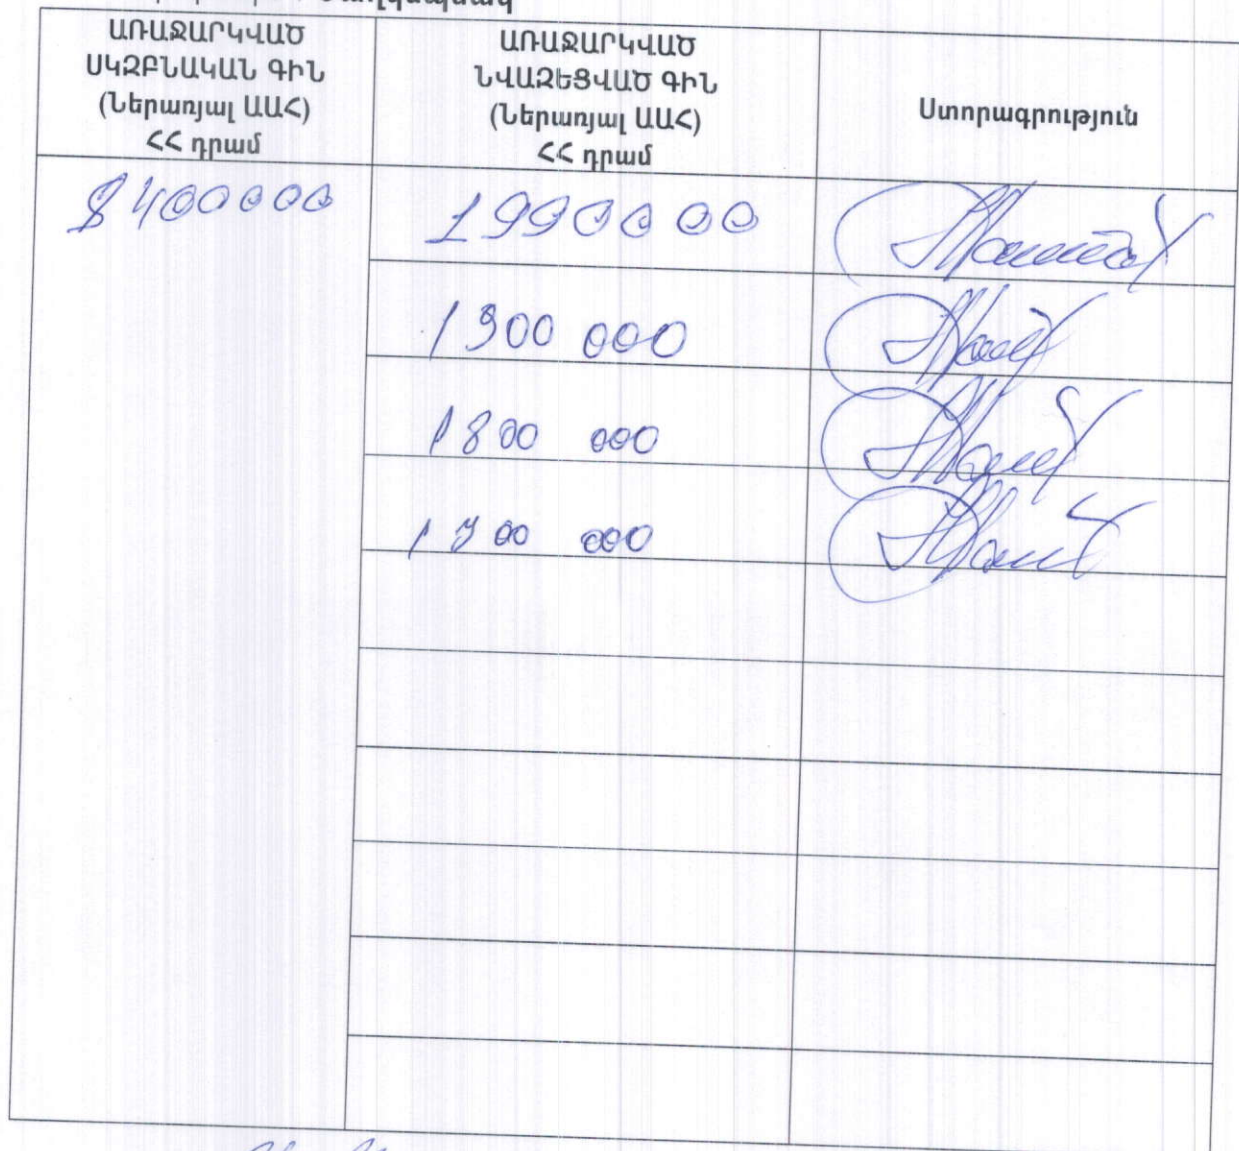 ԱՌԱՋԱՐԿՎԱԾ
ՍԿԶԲՆԱԿԱՆ ԳԻՆ
(Ներառյալ ԱԱՀ)
ՀՀ դրամ
ԱՌԱՋԱՐԿՎԱԾ
ՆՎԱԶԵՑՎԱԾ ԳԻՆ
(Ներառյալ ԱԱՀ)
ՀՀ դրամ
Ստորագրություն
8400000
1990000
1900 000
1800 000
1700 000